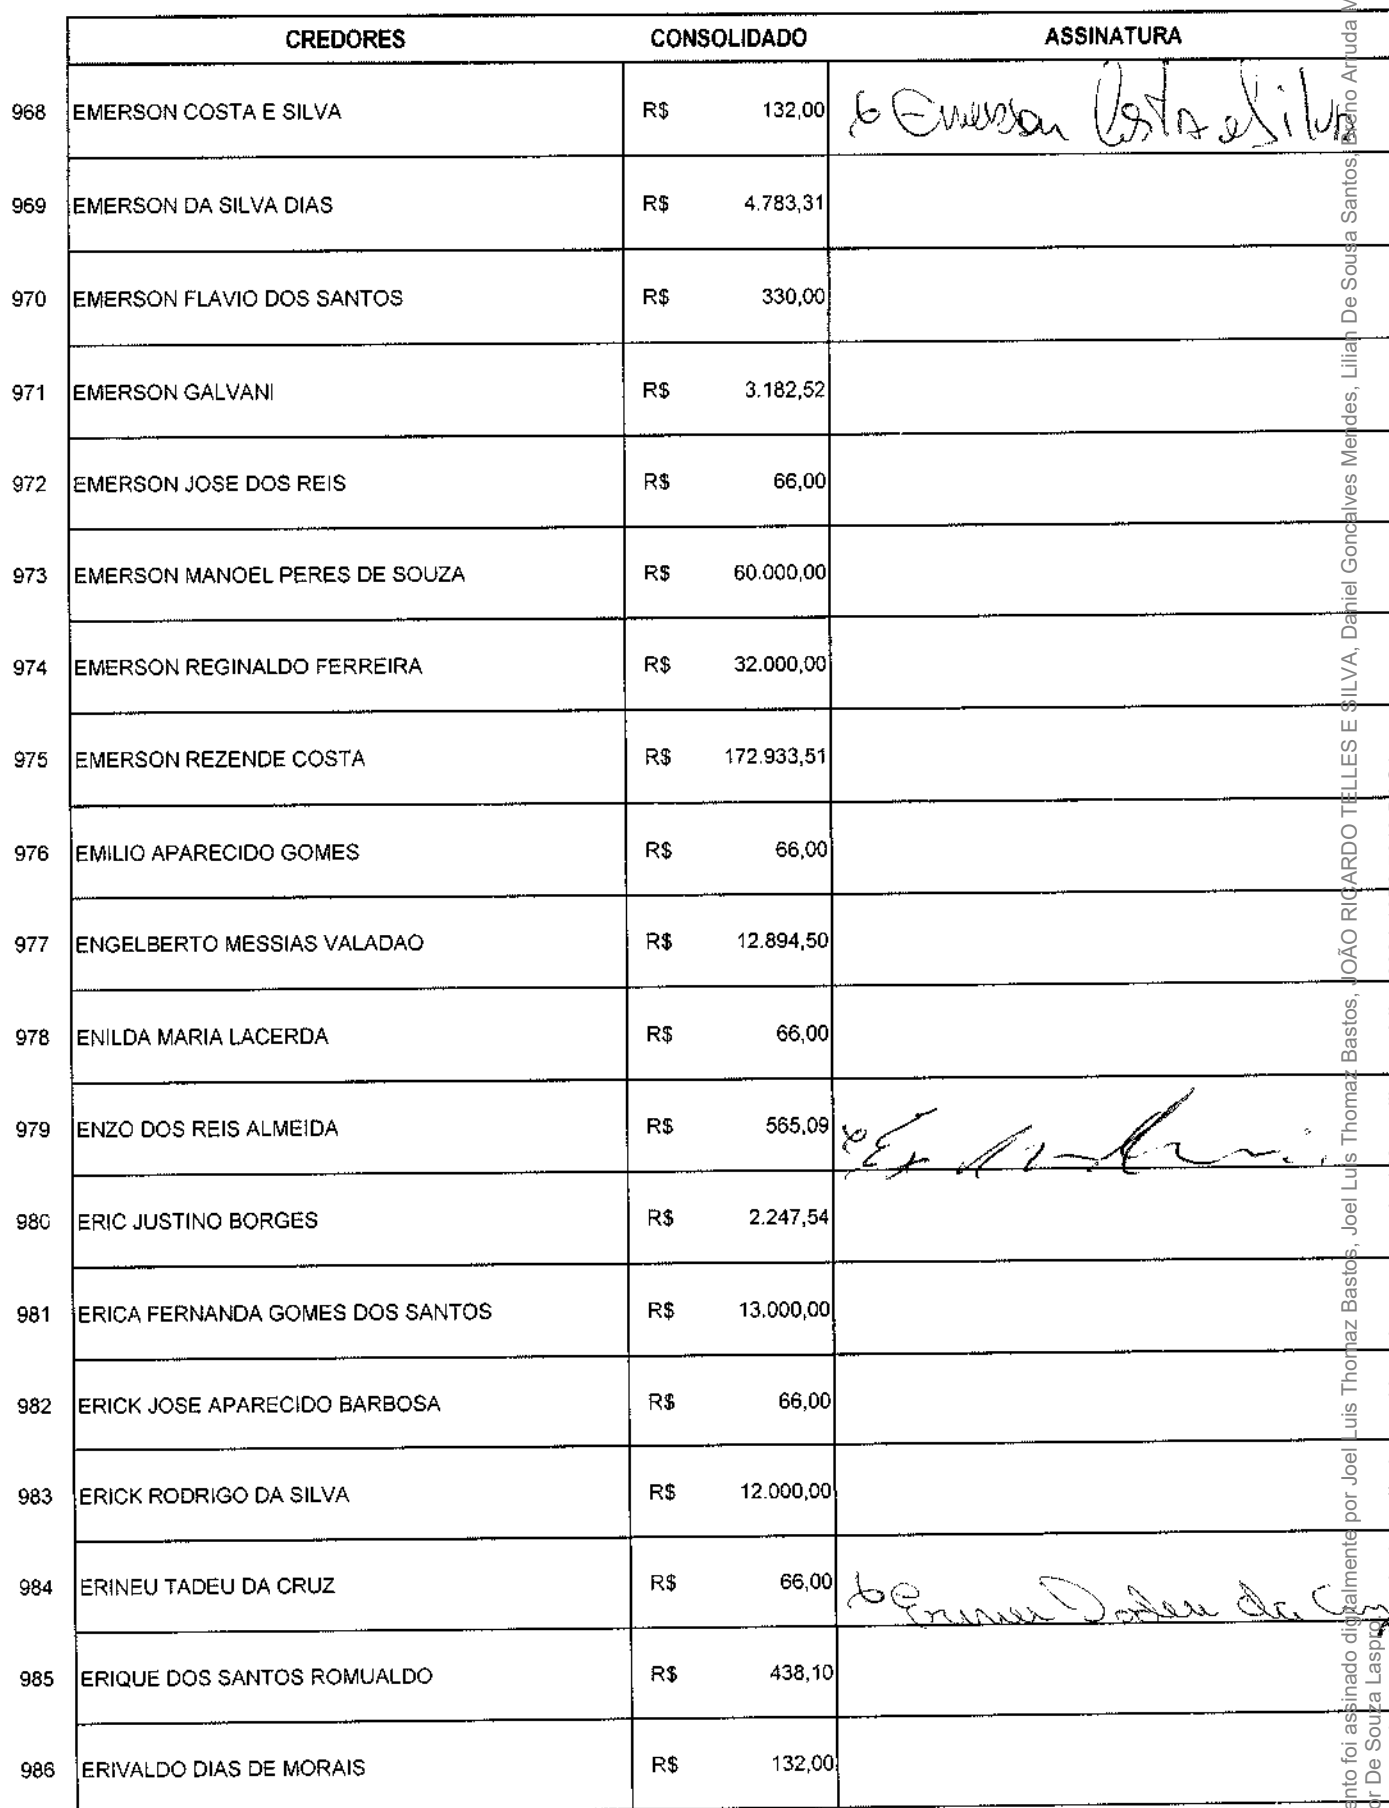 CREDORES CONSOLIDADO ASSINATURA
968 EMERSON COSTA E SILVA R$ 132,00 Emerson Costa e Silva
969 EMERSON DA SILVA DIAS R$ 4.783,31
970 EMERSON FLAVIO DOS SANTOS R$ 330,00
971 EMERSON GALVANI R$ 3.182,52
972 EMERSON JOSE DOS REIS R$ 66,00
973 EMERSON MANOEL PERES DE SOUZA R$ 60.000,00
974 EMERSON REGINALDO FERREIRA R$ 32.000,00
975 EMERSON REZENDE COSTA R$ 172.933,51
976 EMILIO APARECIDO GOMES R$ 66,00
977 ENGELBERTO MESSIAS VALADAO R$ 12.894,50
978 ENILDA MARIA LACERDA R$ 66,00
979 ENZO DOS REIS ALMEIDA R$ 565,09
980 ERIC JUSTINO BORGES R$ 2.247,54
981 ERICA FERNANDA GOMES DOS SANTOS R$ 13.000,00
982 ERICK JOSE APARECIDO BARBOSA R$ 66,00
983 ERICK RODRIGO DA SILVA R$ 12.000,00
984 ERINEU TADEU DA CRUZ R$ 66,00 Erineu Tadeu da Cruz
985 ERIQUE DOS SANTOS ROMUALDO R$ 438,10
986 ERIVALDO DIAS DE MORAIS R$ 132,00
ento foi assinado digitalmente por Joel Luis Thomaz Bastos, Joel Luis Thomaz Bastos, JOÃO RICARDO TELLES E SILVA, Daniel Goncalves Mendes, Lilian De Sousa Santos, Breno Arruda M
or De Souza Laspro